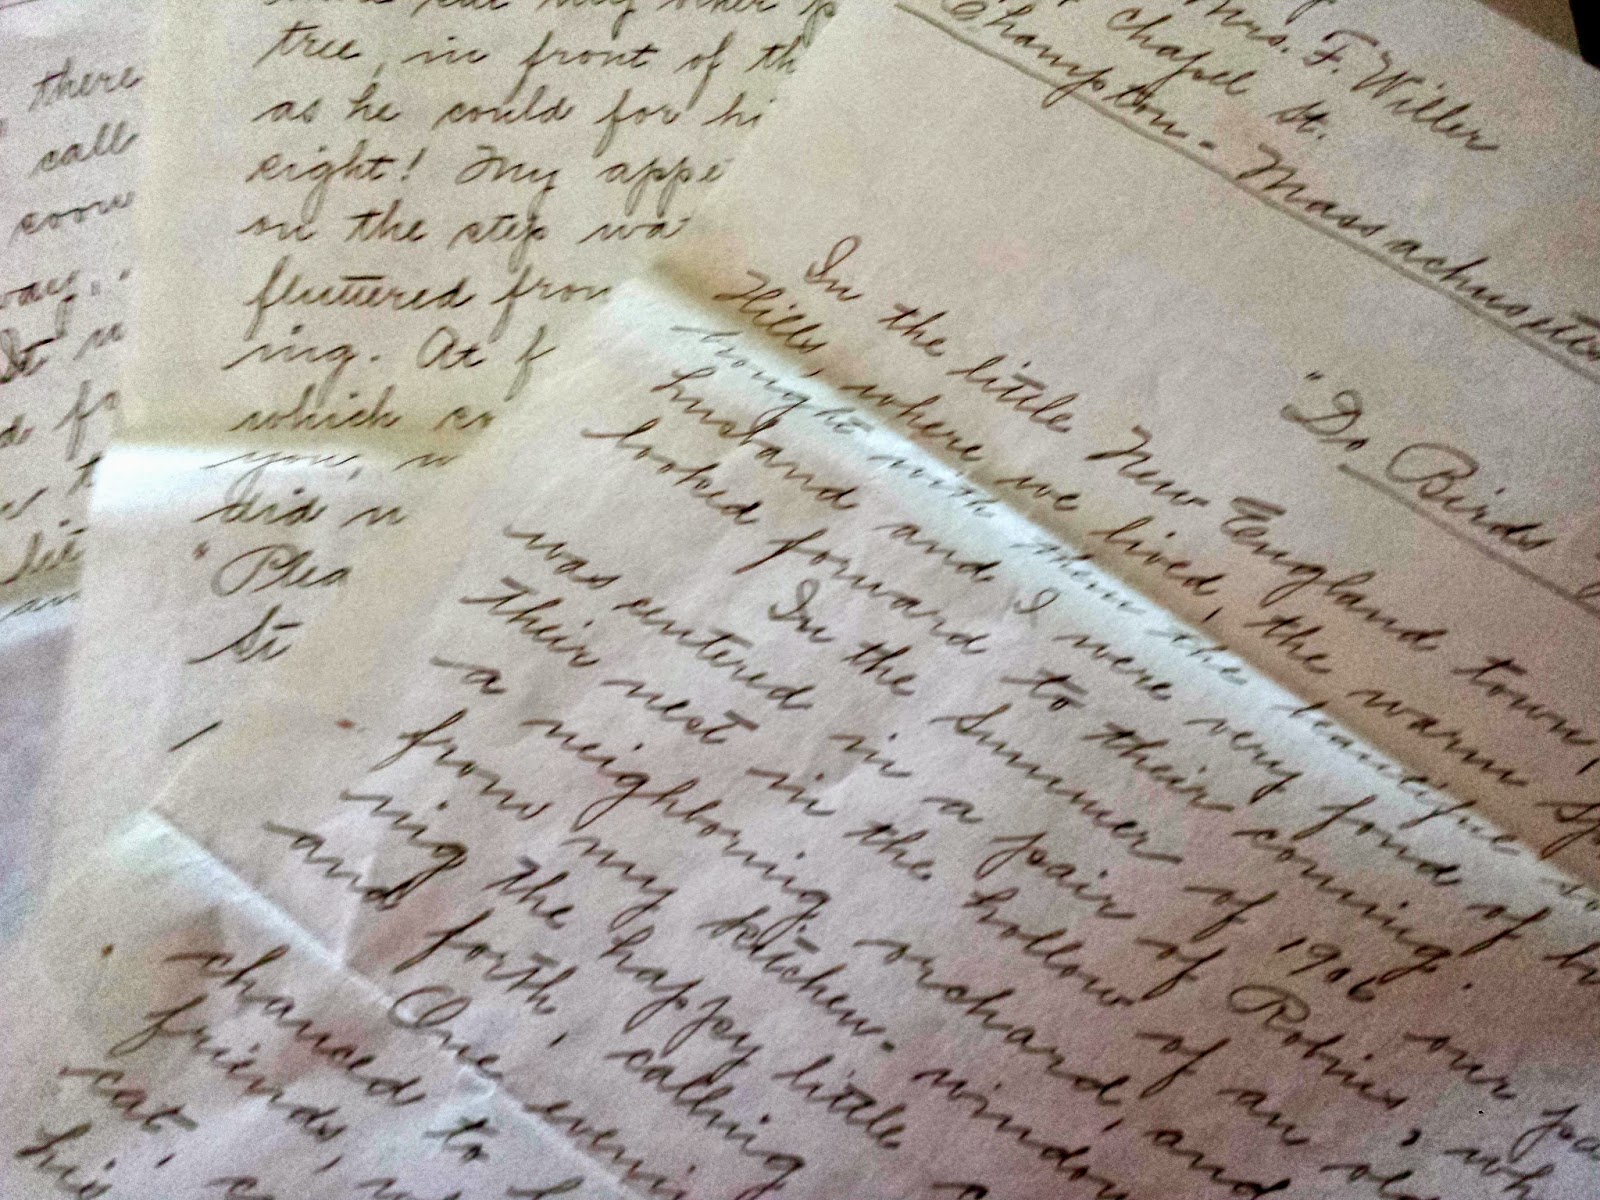 there
call
soon
way.
St
lit
an
tree, in front of th
as he could for hi
eight! My appe
on the step wa
fluttered from
ing. At f
which co
you, w
did n
"Plea
St
Mrs. F. Willer
Chapel St.
hampton - Massachusetts
"Do Birds
In the little New England town,
Hills, where we lived, the warm Sp
brought with them the beautiful so
husband and I were very fond of bi
looked forward to their coming.
In the Summer of 1906 our
was centered in a pair of Robins, wh
their nest in the hollow of an ol
a neighboring orchard, and
from my kitchen-window
ing the happy little
and forth, calling
One eveni
chanced to
friends,
cat,
his